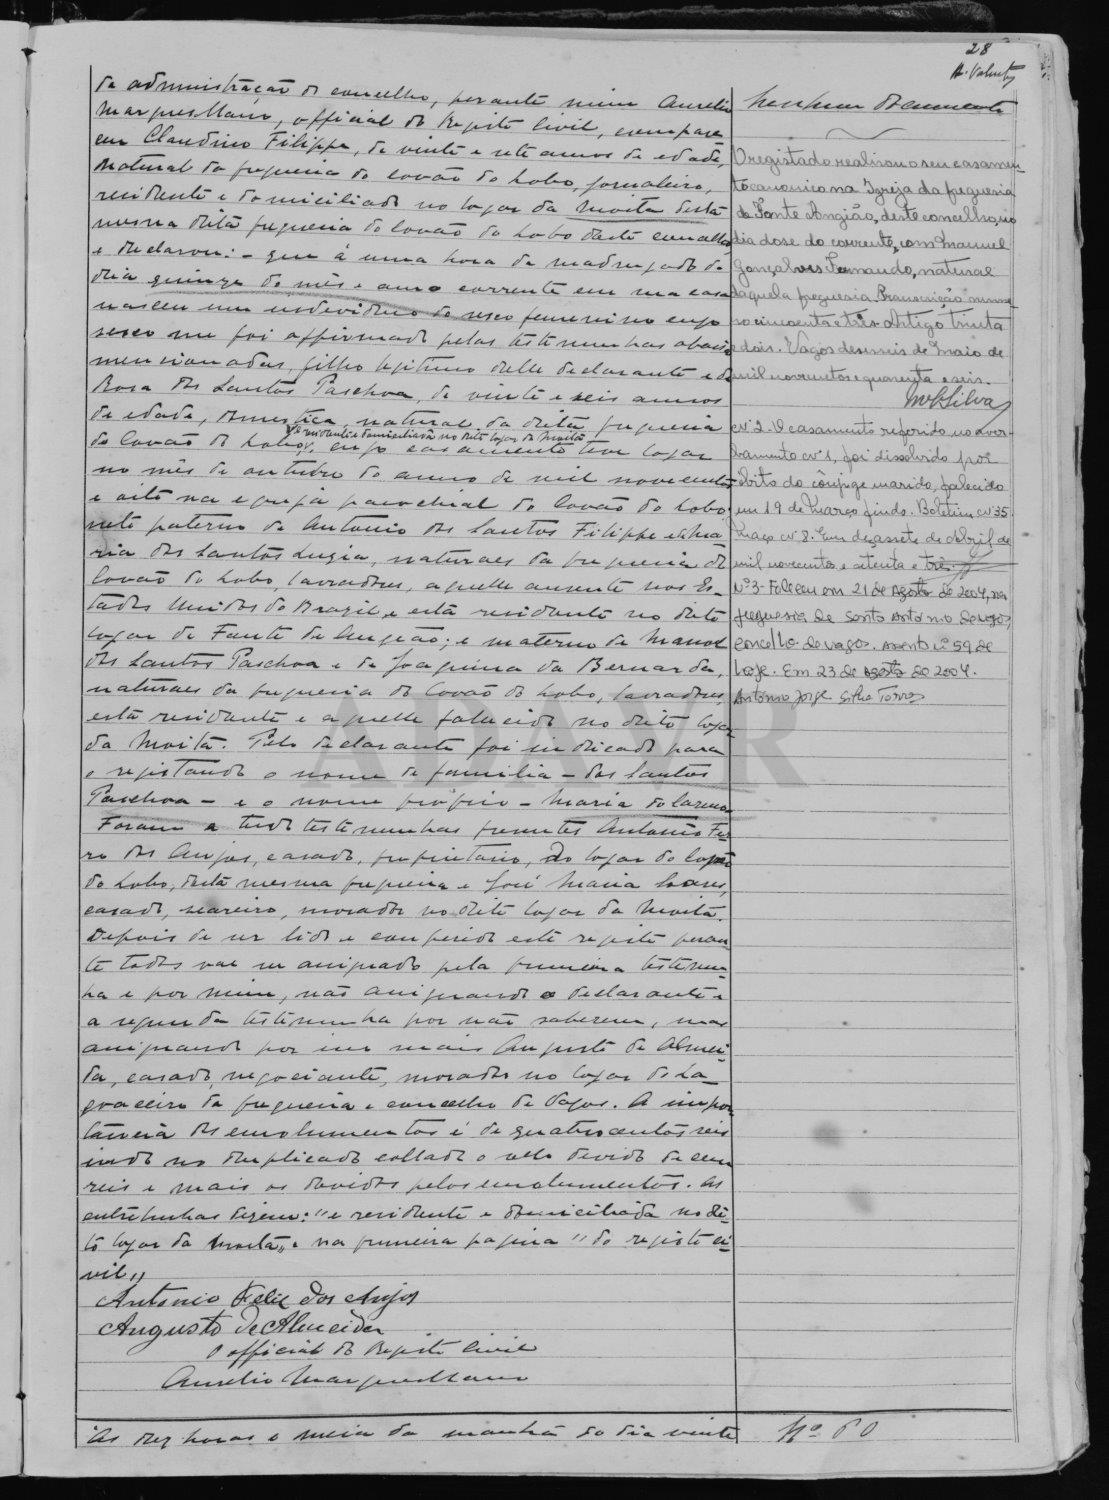 28
A. Valente
da administração do concelho, perante mim Aurelio
Marques Mano, official do Registo Civil, compare-
ceu Claudino Filippe, de vinte e sete annos de edade,
natural da freguezia do Covão do Lobo, jornaleiro,
residente e domiciliado no logar da Moita desta
mesma dita freguezia do Covão do Lobo deste concelho
e declarou: - que á uma hora da madrugada do
dia quinze do mês e anno corrente em sua casa
nasceu um individuo do sexo femenino cujo
sexo me foi affirmado pelas testemunhas abaixo
mencionadas, filho legitimo delle declarante e de
Rosa dos Santos Paschoa, de vinte e seis annos
de edade, domestica, natural da dita freguezia
e residente e domiciliada no dito logar da Moita
do Covão do Lobo, cujo casamento teve logar
no mês de outubro do anno de mil novecentos
e oito na egreja parochial do Covão do Lobo,
neto paterno de Antonio dos Santos Filippe e Ma-
ria dos Santos Luzia, naturaes da freguezia do
Covão do Lobo, lavradores, aquelle ausente nos Es-
tados Unidos do Brazil, e esta residente no dito
logar de Fonte de Angeão; e materno de Manoel
dos Santos Paschoa e de Joaquina da Bernarda,
naturaes da freguezia do Covão do Lobo, lavradores,
esta residente e aquelle falecido no dito logar
da Moita. Pelo declarante foi indicado para
o registando o nome de familia - dos Santos
Paschoa - e o nome próprio - Maria do Carmo -
Foram a tudo testemunhas presentes Antonio Fe-
liz dos Anjos, casado, proprietario, do logar do Covão
do Lobo, desta mesma freguezia e José Maria Soares,
casado, seareiro, morador no dito logar da Moita.
Depois de ser lido e conferido este registo peran-
te todos vae ser assignado pela primeira testemu-
nha e por mim, não assignando o declarante e
a segunda testemunha por não saberem, mas
assignando por eles mais Augusto de Almei-
da, casado, negociante, morador no logar de La-
voaceiro da freguezia e concelho de Vagos. A impor-
tancia dos emolumentos é de quatrocentos reis
indo no duplicado collado o sello devido de cem
reis e mais os devidos pelos emolumentos. As
entrelinhas dizem: "e residente e domiciliada no di-
to logar da Moita" e na primeira pagina "do registo ci-
vil"
Antonio Feliz dos Anjos
Augusto de Almeida
O official do Registo Civil
Aurelio Marques Mano
As dez horas e meia da manhã do dia vinte
Nenhum documento
O registado realizou o seu casamen-
to canonico na Igreja da freguesia
de Fonte Angião, deste concelho, no
dia dose do corrente, com Manuel
Gonçalves Fernando, natural
daquela freguesia. Transcrição nume-
ro cincoenta e três. Artigo trinta
e dois. Vagos desasseis de Maio de
mil novecentos e quarenta e seis.
Silva
Nº 2. O casamento referido no aver-
bamento nº 1, foi dissolvido por
óbito do cônjuge marido, falecido
em 19 de Março findo. Boletim nº 35
Maço nº 8. Em dezassete de Abril de
mil novecentos e setenta e três.
Nº 3 - Faleceu em 21 de Agosto de 2004, na
freguesia de Santo António de Vagos,
concelho de Vagos. Assento nº 59 de
hoje. Em 23 de Agosto de 2004.
António Jorge Silva Torres
Nº 60
ADAVR